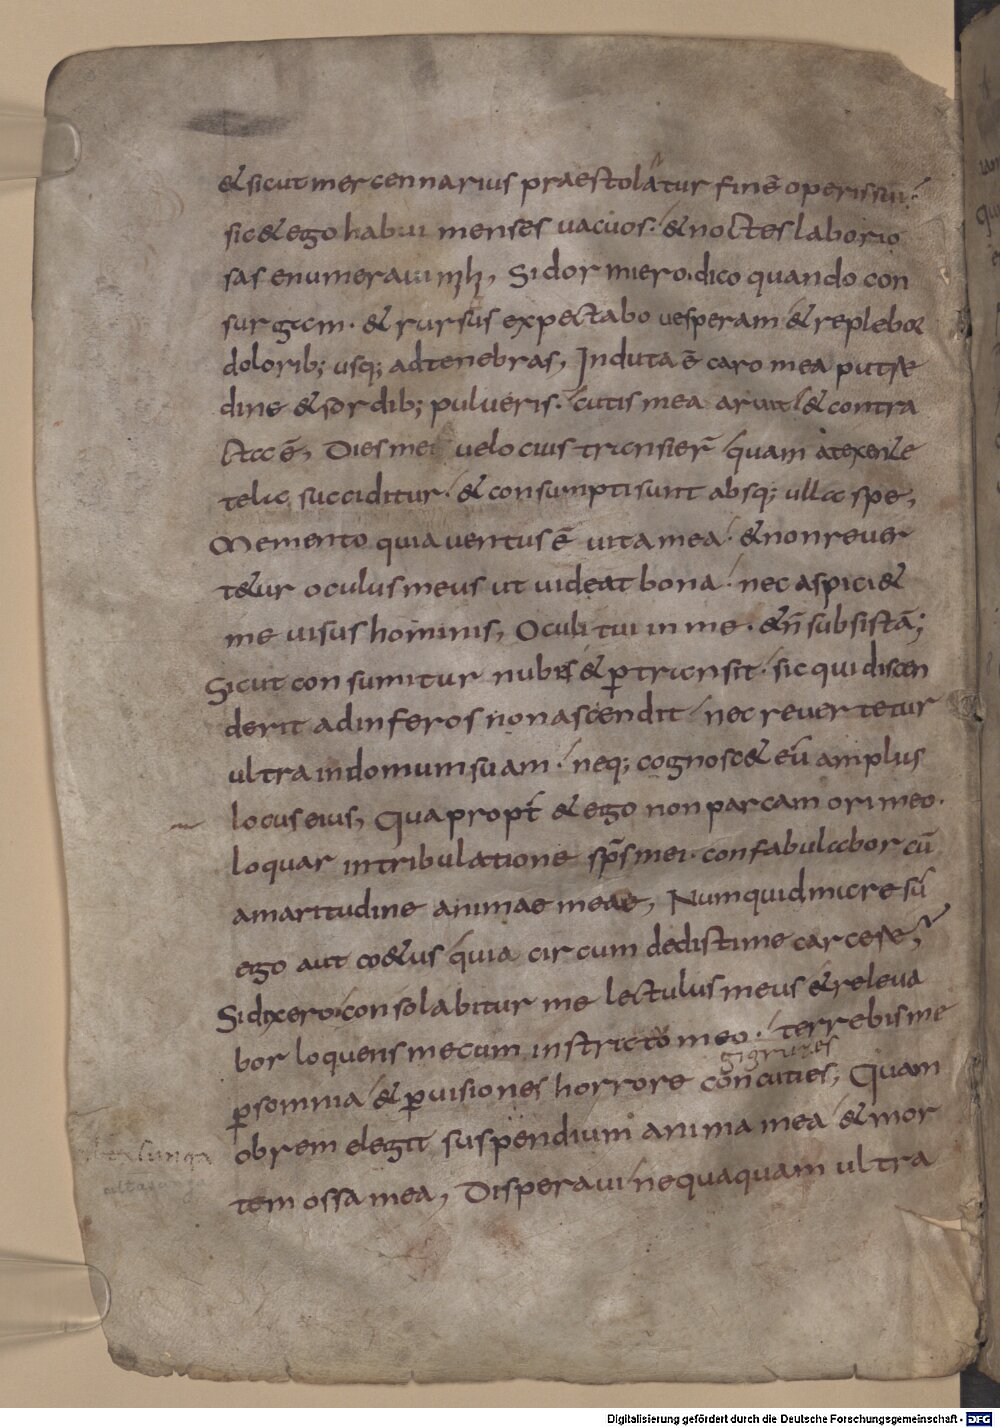 & sicut mercennarius praestolatur finē operis sui.
sic & ego habui menses vacuos. & noctes laborio
sas enumeravi mihi, Si dormiero. dico quando con
surgam. & rursus expectabo vesperam & replebor
dolorib; usq; ad tenebras, Induta ē caro mea putre
dine & sordib; pulveris. cutis mea aruit & contra
cta ē, Dies mei velocius transier̄ quam a texente
tela succiditur. & consumpti sunt absq; ulla spe,
Memento quia ventus ē vita mea. & non rever
t&ur oculus meus ut videat bona. nec aspici&
me visus hominis, Oculi tui in me. & n̄ subsistā;
Sicut consumitur nubes & ꝑtransit. sic qui discen
derit ad inferos non ascendit nec revertetur
ultra in domum suam. neq; cognosc& eū amplius
locus eius, Quapropt̄ & ego non parcam ori meo.
loquar in tribulatione sp̄s mei. confabulabor cū
amaritudine animae meae, Numquid mare sū
ego aut co&us quia circumdedisti me carcere;
Si dixero. consolabitur me lectulus meus & releva
bor loquens mecum in strato meo. terrebis me
ꝑ somnia & ꝑ visiones horrore concuties; Quam
obrem elegit suspendium anima mea & mor
tem ossa mea, Disperavi nequaquam ultra
Digitalisierung gefördert durch die Deutsche Forschungsgemeinschaft - DFG